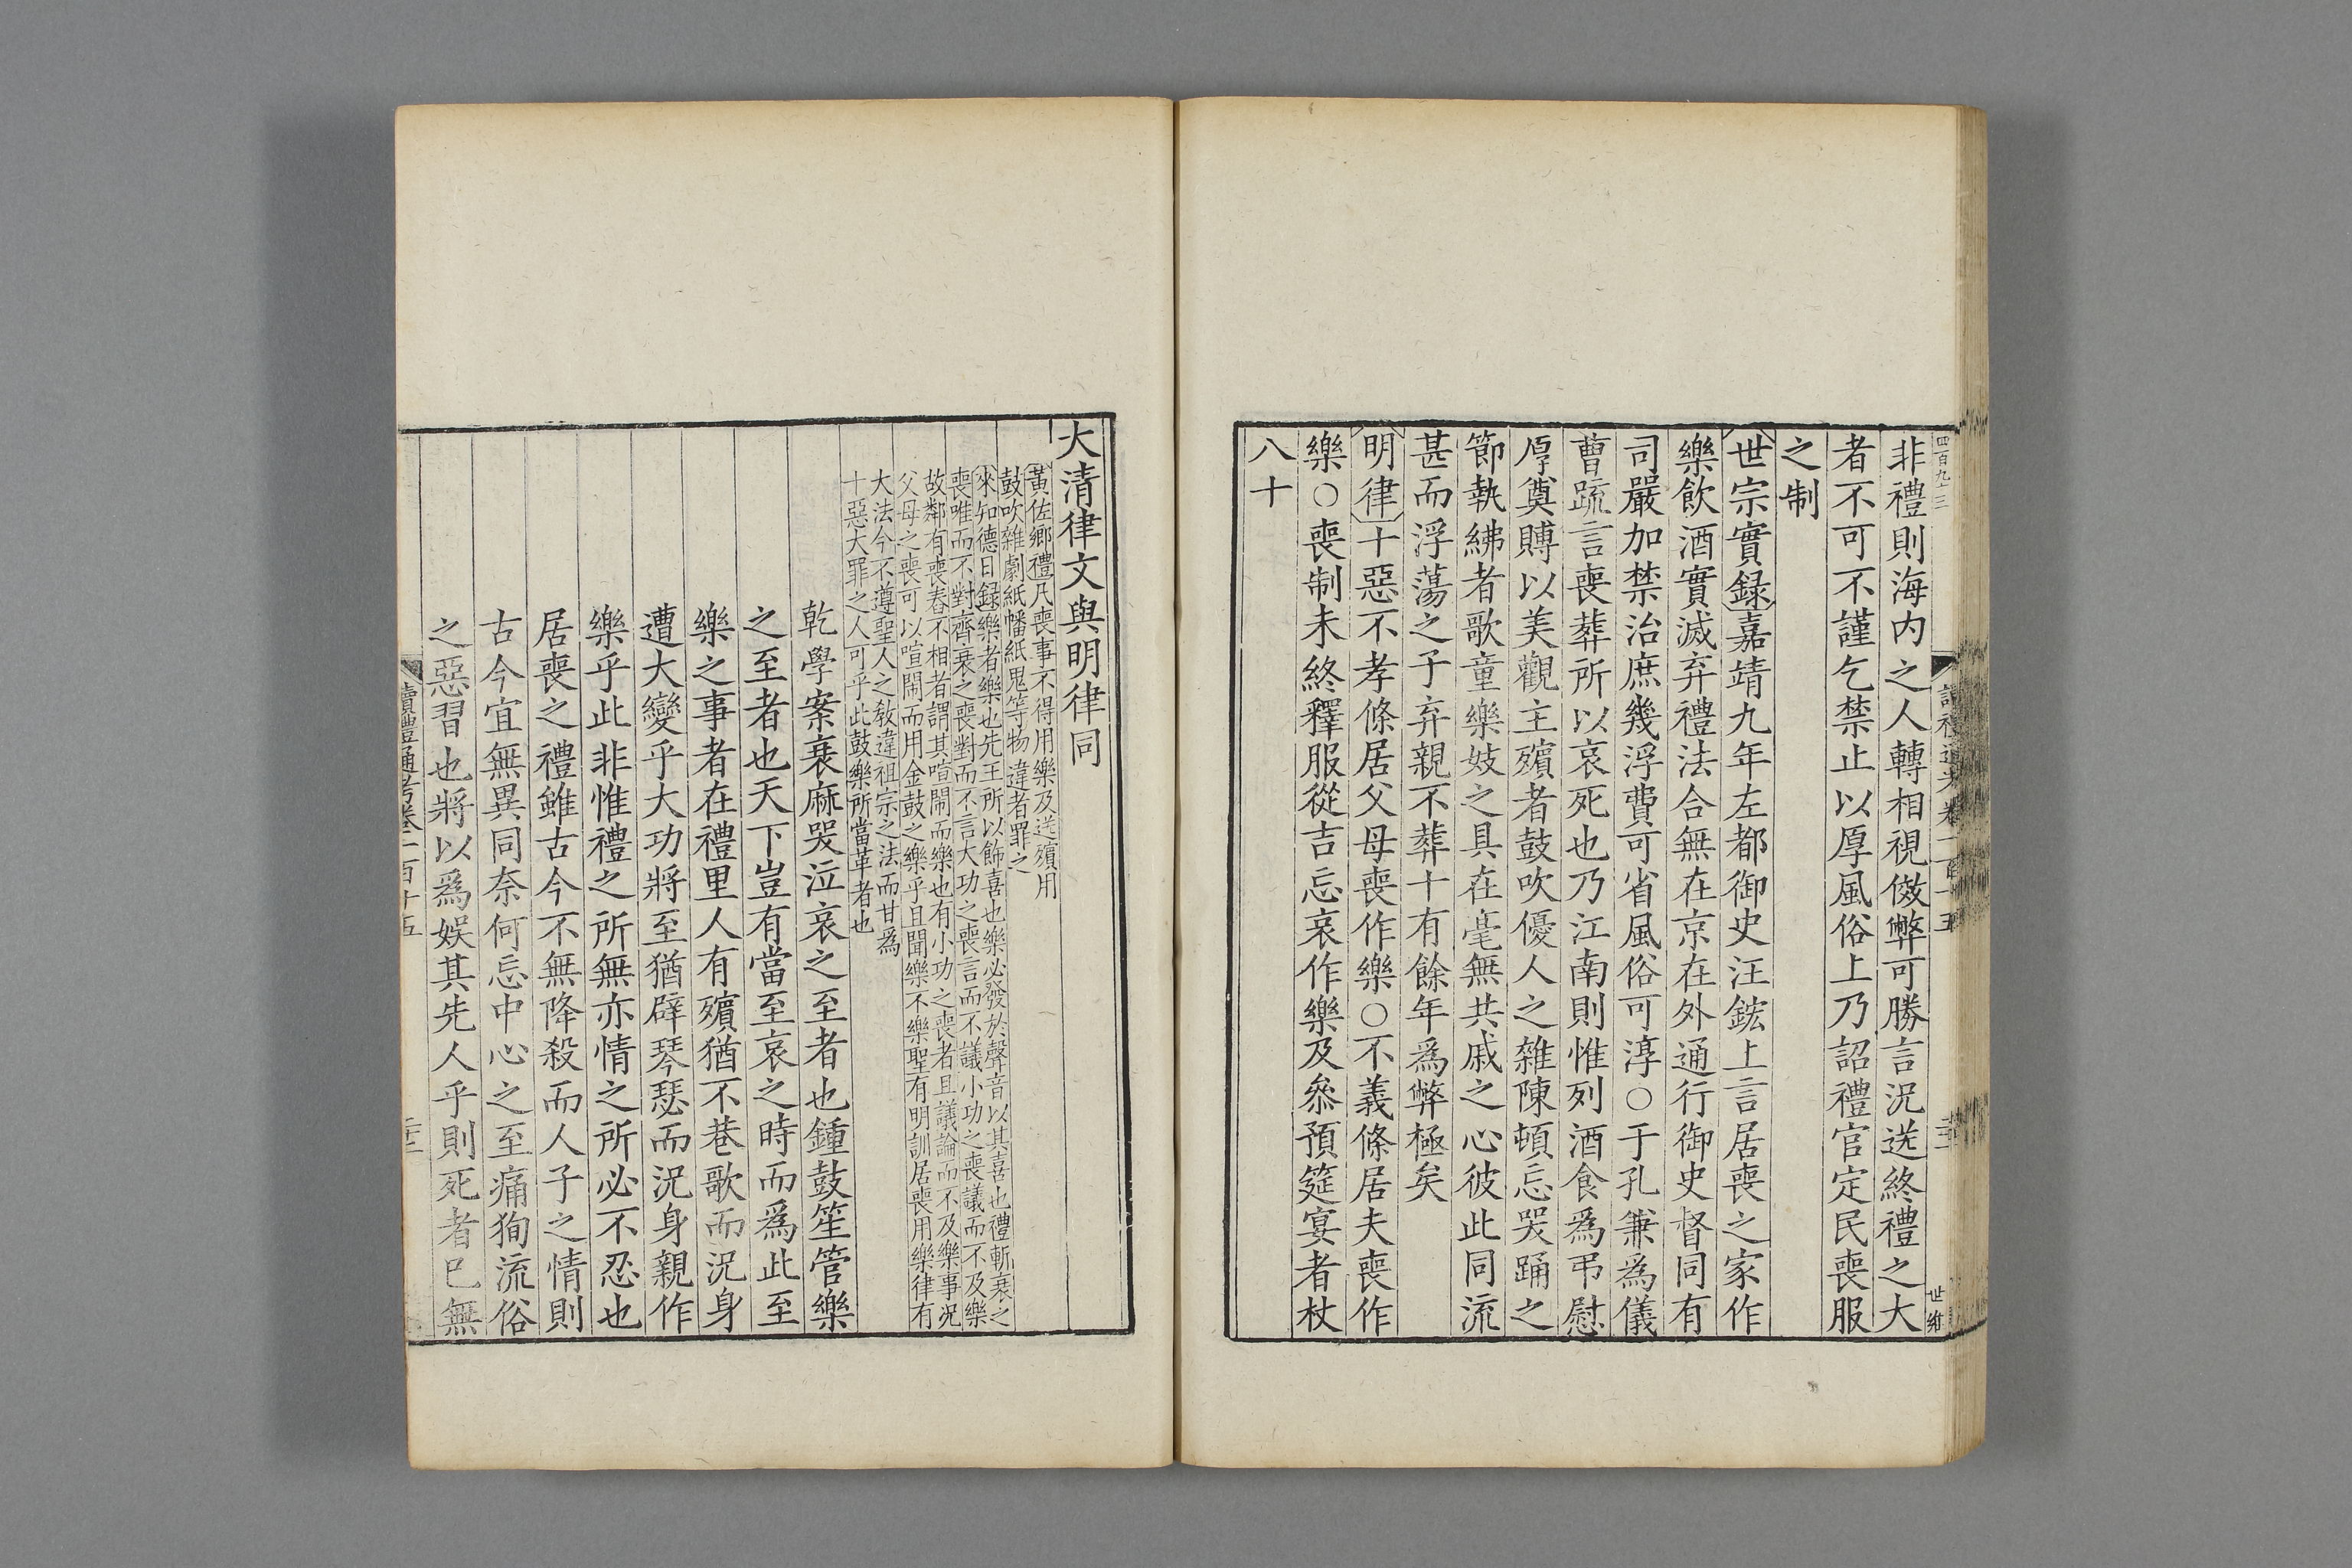 四百九十三
讀禮通考卷一百一十五
世綍
非禮則海内之人轉相視傚弊可勝言況送終禮之大
者不可不謹乞禁止以厚風俗上乃詔禮官定民喪服
之制
世宗實録嘉靖九年左都御史汪鋐上言居喪之家作
樂飲酒實滅弃禮法合無在京在外通行御史督同有
司嚴加禁治庶幾浮費可省風俗可淳○于孔兼為儀
曹疏言喪葬所以哀死也乃江南則惟列酒食為弔慰
厚奠賻以美觀主殯者鼓吹優人之雜陳頓忘哭踊之
節執紼者歌童樂妓之具在毫無共戚之心彼此同流
甚而浮蕩之子弃親不葬十有餘年為弊極矣
明律十惡不孝條居父母喪作樂○不義條居夫喪作
樂○喪制未終釋服從吉忘哀作樂及叅預筵宴者杖
八十
大清律文與明律同
黄佐鄉禮凡喪事不得用樂及送殯用
鼓吹雜劇紙幡紙鬼等物違者罪之
來知德日録樂者樂也先王所以飾喜也樂必發於聲音以其喜也禮斬衰之
喪唯而不對齊衰之喪對而不言大功之喪言而不議小功之喪議而不及樂
故鄰有喪舂不相者謂其喧鬧而樂也有小功之喪者且議論而不及樂事况
父母之喪可以喧鬧而用金鼓之樂乎且聞樂不樂聖有明訓居喪用樂律有
大法今不遵聖人之教違祖宗之法而甘為
十惡大罪之人可乎此鼓樂所當革者也
乾學案衰麻哭泣哀之至者也鍾鼓笙管樂
之至者也天下豈有當至哀之時而為此至
樂之事者在禮里人有殯猶不巷歌而況身
遭大變乎大功將至猶辟琴瑟而況身親作
樂乎此非惟禮之所無亦情之所必不忍也
居喪之禮雖古今不無降殺而人子之情則
古今宜無異同奈何忘中心之至痛狥流俗
之惡習也將以為娱其先人乎則死者已無
讀禮通考卷一百十五